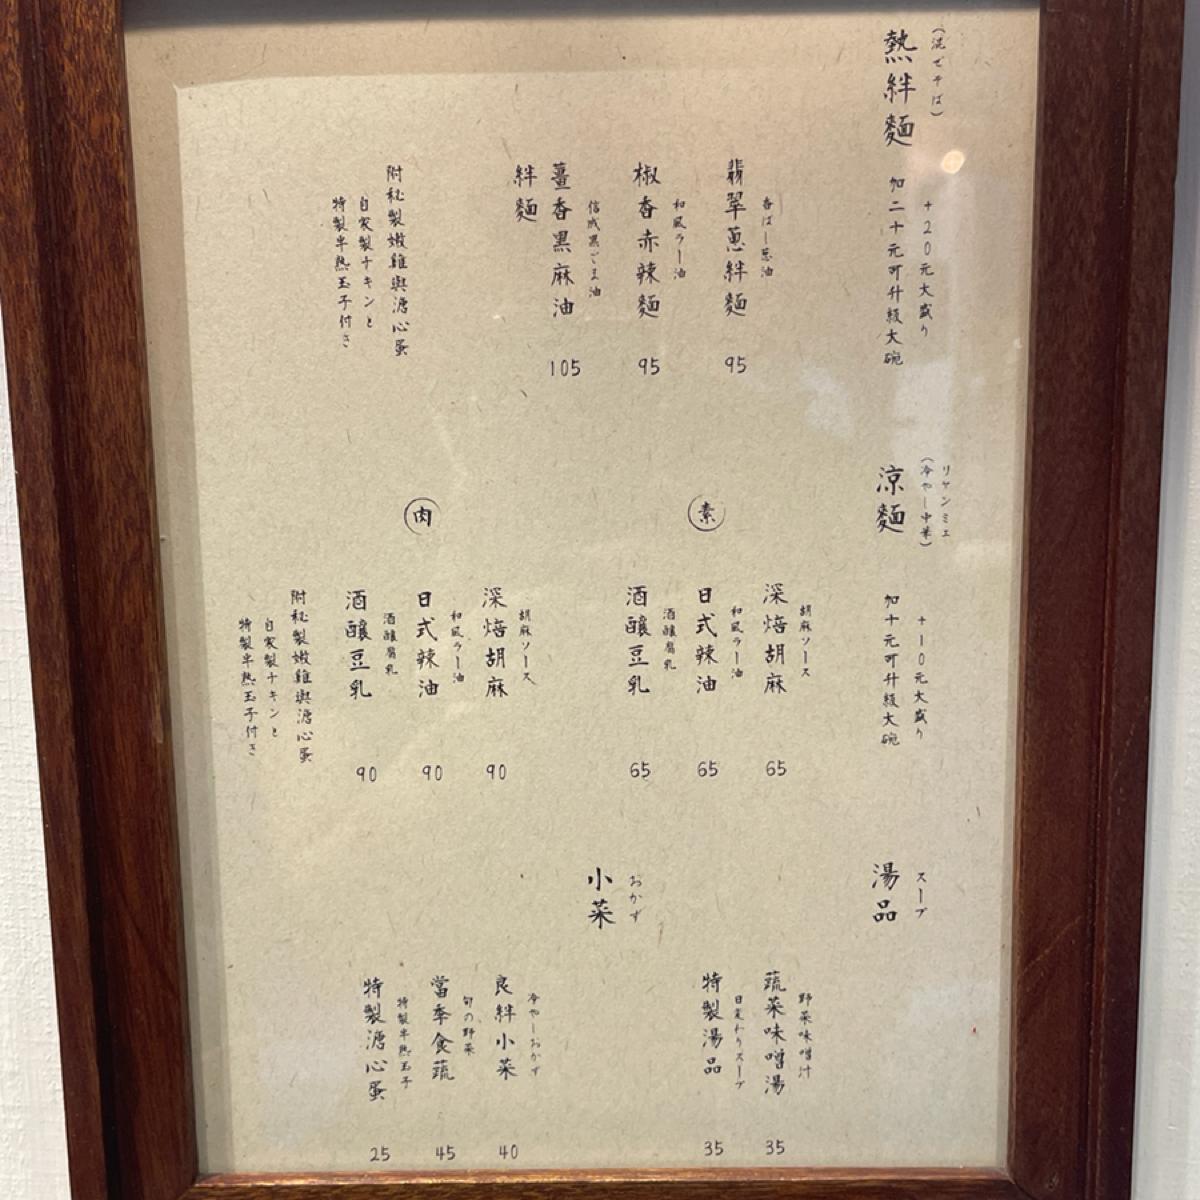 (混ぜそば)
熱絆麵
+20元大盛り
加二十元可升級大碗
香ばし葱油
翡翠蔥絆麵
95
和風ラー油
椒香赤辣麵
95
黒ごま油
薑香黑麻油
絆麵
105
附秘製嫩雞與溏心蛋
自家製チキンと
特製半熟玉子付き
リャンミェ
(冷やし中華)
涼麵
+10元大盛り
加十元可升級大碗
素
胡麻ソース
深焙胡麻
65
和風ラー油
日式辣油
65
酒釀腐乳
酒釀豆乳
65
肉
胡麻ソース
深焙胡麻
90
和風ラー油
日式辣油
90
酒釀腐乳
酒釀豆乳
90
附秘製嫩雞與溏心蛋
自家製チキンと
特製半熟玉子付き
スープ
湯品
野菜味噌汁
蔬菜味噌湯
35
日変わりスープ
特製湯品
35
おかず
小菜
冷やしおかず
良絆小菜
40
旬の野菜
當季食蔬
45
特製半熟玉子
特製溏心蛋
25